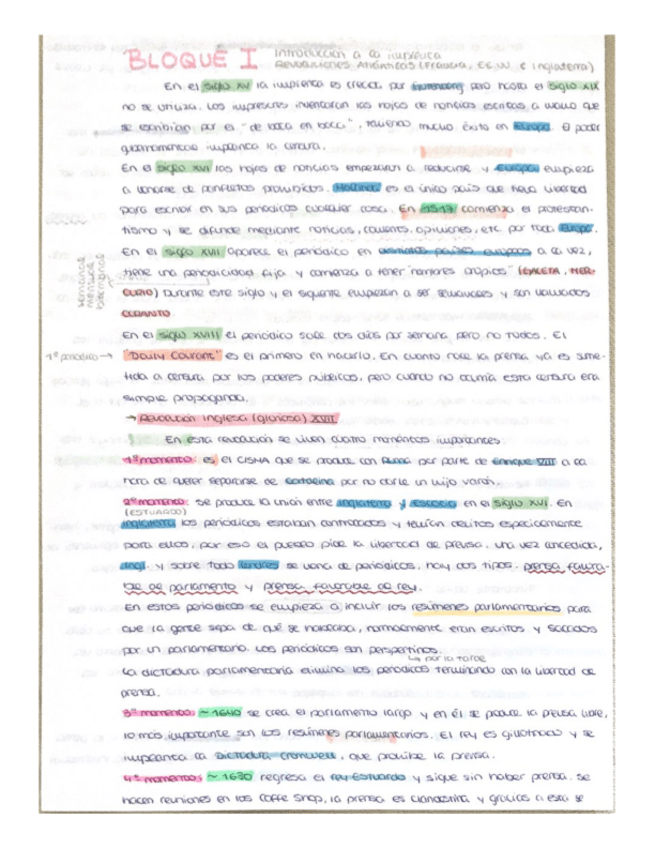 BLOQUE I Introducción a la imprenta
Revoluciones Atlánticas (Francia, EE.UU e Inglaterra)
En el siglo XV la imprenta es creada por Gutenberg pero hasta el siglo XIX
no se utiliza. Los impresores inventaron las hojas de noticias escritas a mano que
se escribían por el "de boca en boca", teniendo mucho éxito en Europa. El poder
gubernamental implanta la censura.
En el siglo XVI las hojas de noticias empezaron a reducirse y Europa empieza
a llenarse de panfletos prohibidos. Holanda es el único país que tiene libertad
para escribir en sus periódicos cualquier cosa. En 1517 comienza el protestan-
tismo y se difunde mediante noticias, opiniones, etc por toda Europa.
En el siglo XVII aparece el periódico en distintos países europeos a la vez,
semanal
mensual
bimensual
tiene una periodicidad fija y comienza a tener "nombres propios" (GACETA, MER-
CURIO) Durante este siglo y el siguiente empiezan a ser semanales y son llamados
CORANTO
En el siglo XVIII el periódico sale dos días por semana pero no todos. El
1º periódico → "Daily Courant" es el primero en hacerlo. En cuanto nace la prensa ya es some-
tida a censura por los poderes públicos, pero cuando no ocurría esta censura era
simple propaganda.
→ Revolución Inglesa (gloriosa) XVII
En esta revolución se viven cuatro momentos importantes
1º momento: es el CISMA que se produce con Roma por parte de Enrique VIII a la
hora de querer separarse de Catalina por no darle un hijo varón.
2º momento: se produce la unión entre Inglaterra y Escocia en el siglo XVI. En
(ESTUARDO)
Inglaterra los periódicos estaban controlados y tenían delitos especialmente
para ellos, por eso el pueblo pide la libertad de prensa. una vez concedida,
Ingl. y sobre todo Londres se llena de periódicos. hay dos tipos: prensa favora-
ble al parlamento y prensa favorable al rey.
En estos periódicos se empieza a incluir los resúmenes parlamentarios para
que la gente sepa de qué se hablaba, normalmente eran escritos y sacados
por un parlamentario. Los periódicos son vespertinos.
↳ por la tarde
La dictadura parlamentaria elimina los periódicos terminando con la libertad de
prensa.
3º momento: ~ 1640 se crea el parlamento largo y en él se produce la prensa libre,
lo más importante son los resúmenes parlamentarios. El rey es guillotinado y se
implanta la Dictadura Cromwell, que prohíbe la prensa.
4º momento: ~ 1630 regresa el rey Estuardo y sigue sin haber prensa. Se
hacen reuniones en las Coffe Shop, la prensa es clandestina y gracias a esta se